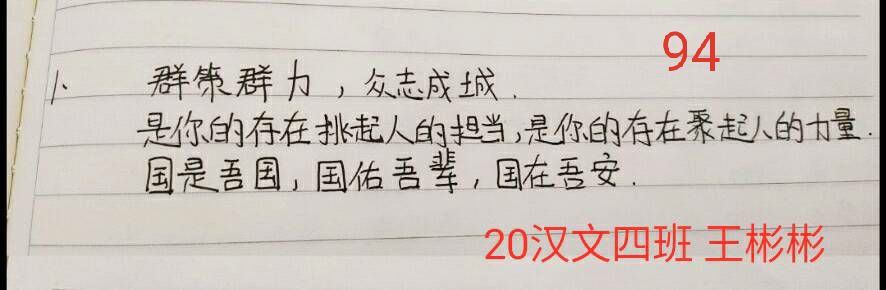 94
1、 群策群力，众志成城.
是你的存在挑起人的担当,是你的存在聚起人的力量.
国是吾国，国佑吾辈，国在吾安.
20汉文四班 王彬彬